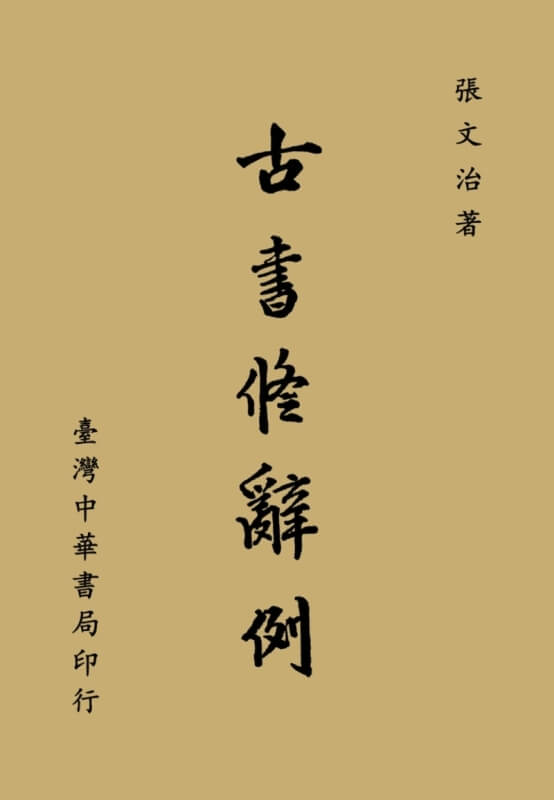 張文治著
古書修辭例
臺灣中華書局印行